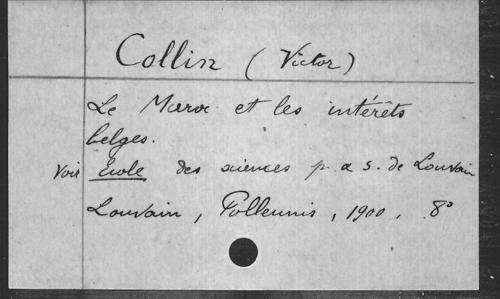 Collin (Victor)
Le Maroc et les intérêts
belges.
Voir Ecole des sciences p. & s. de Louvain
Louvain, Polleunis, 1900, 8°